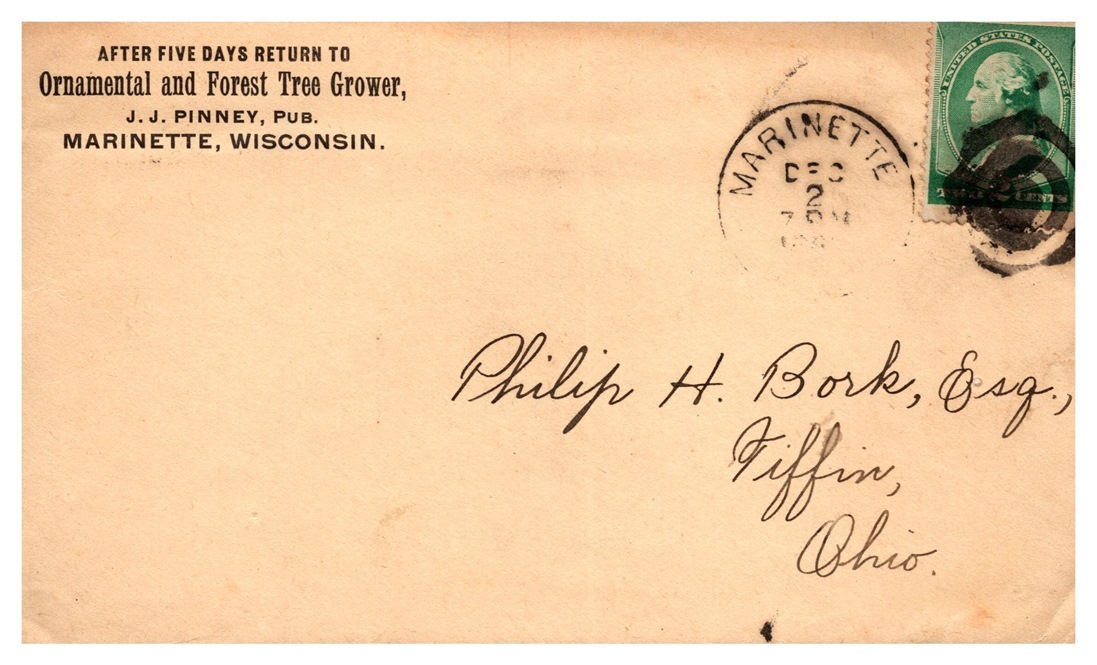 AFTER FIVE DAYS RETURN TO
Ornamental and Forest Tree Grower,
J. J. PINNEY, PUB.
MARINETTE, WISCONSIN.
MARINETTE
DEC
2
7 PM
UNITED STATES POSTAGE
2
CENTS
Philip H. Bork, Esq.,
Tiffin,
Ohio.